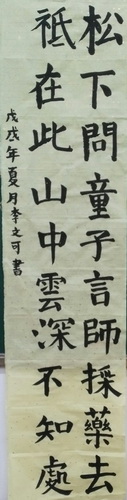 松下問童子言師採藥去
祗在此山中雲深不知處
戊戌年夏月李文可書